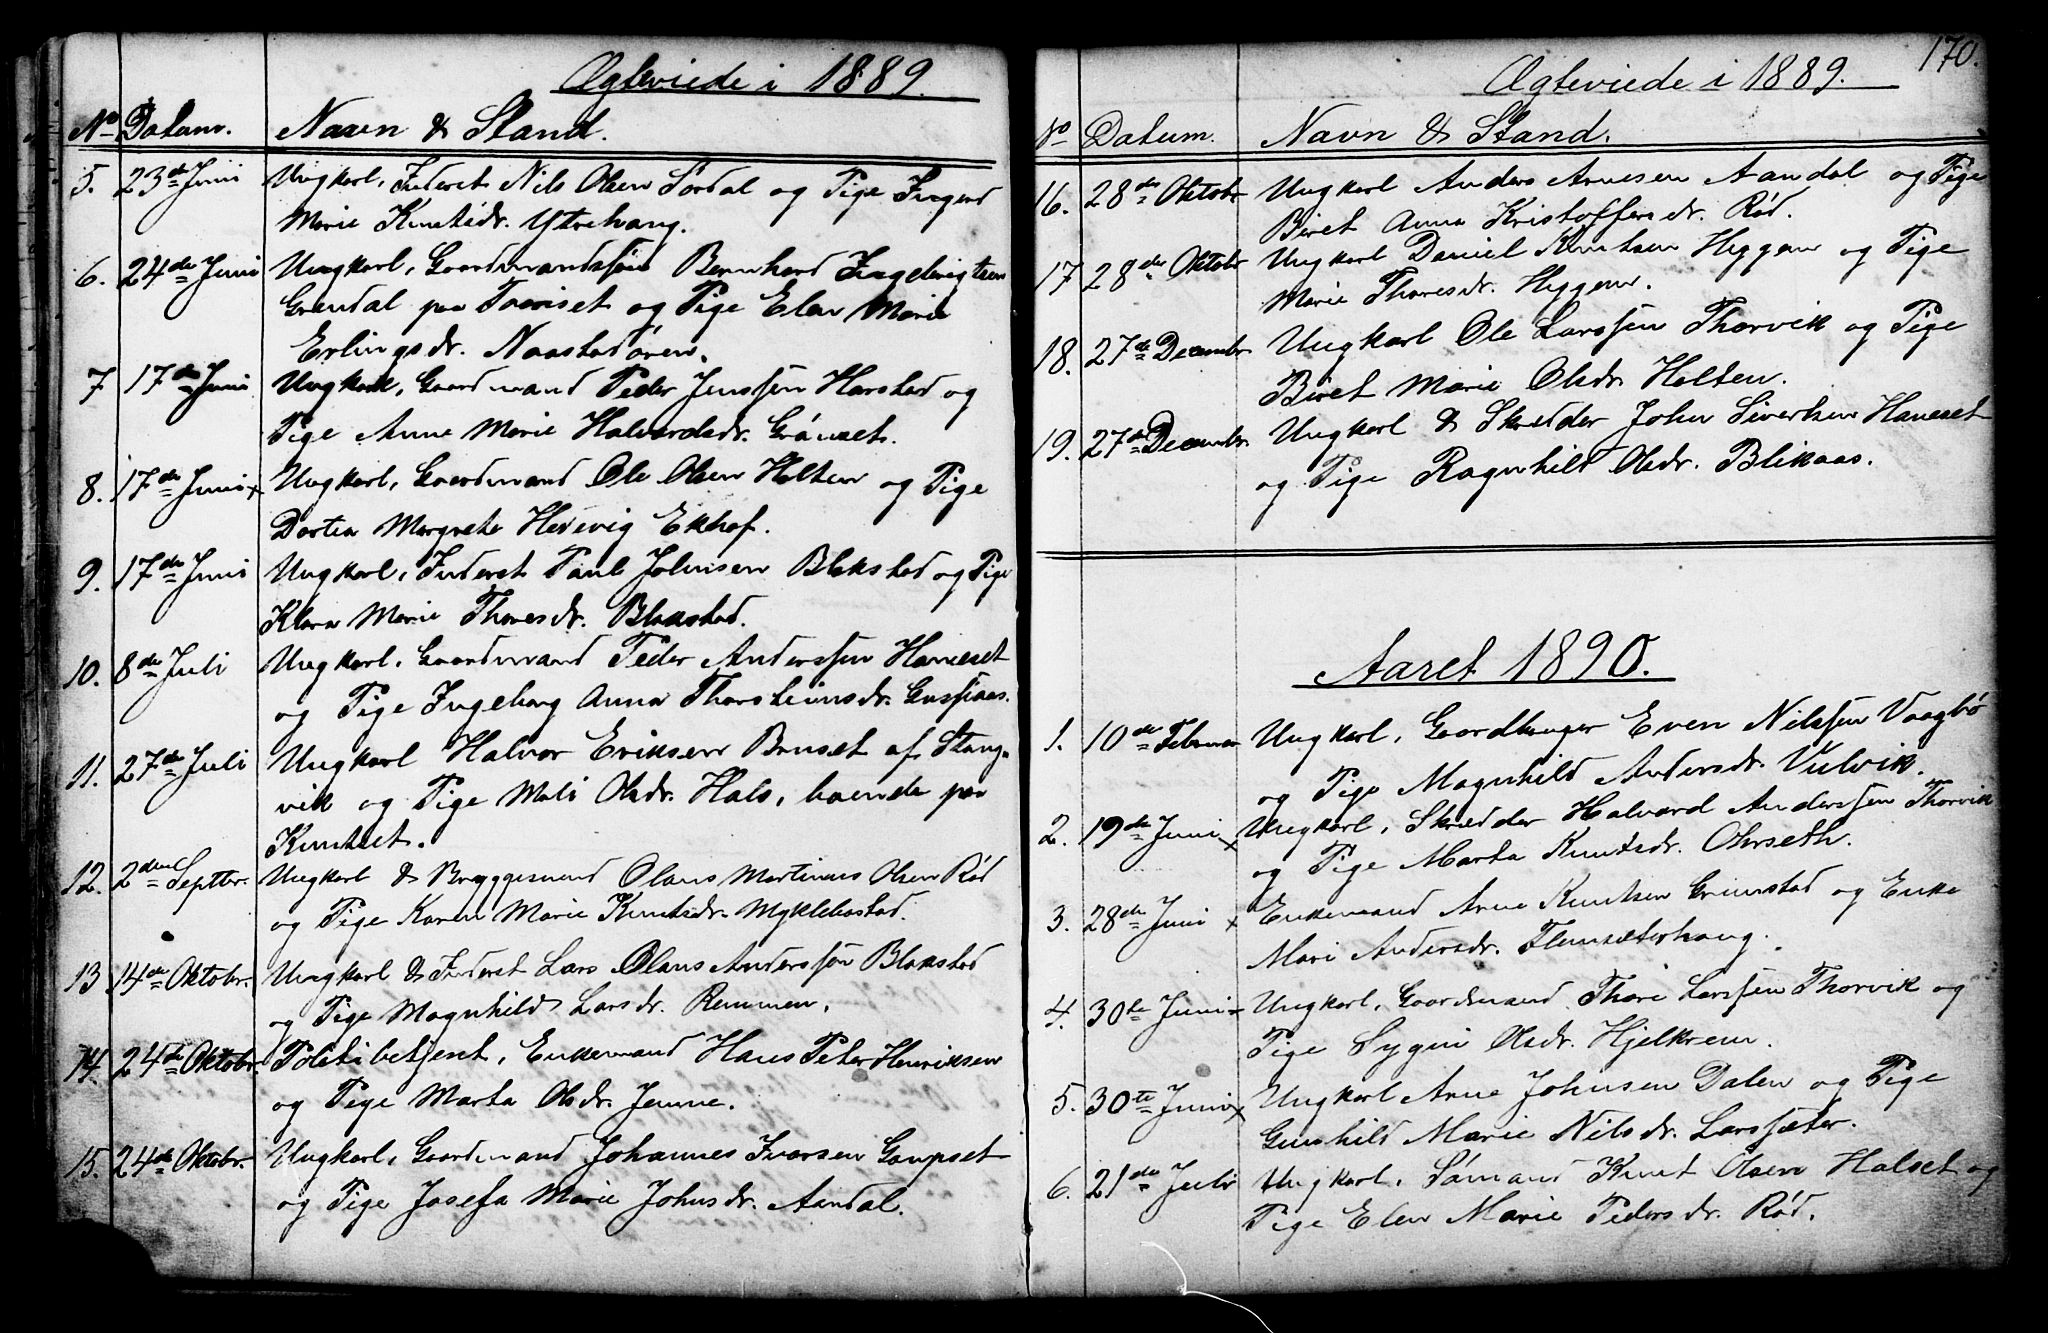 Ægteviede i 1889.
No Datum. Navn & Stand.
5. 23de Juni Ungkarl, Inderst Nils Olsen Sordal og Pige Ingend
Marie Knutsdr. Ytrehaug.
6. 24de Juni Ungkarl, Gaardmandssøn Bernhard Ingebrigtsen
Grendal paa og Pige Elen Marie
Erlingsdr. Naastadøren.
7 17de Juni Ungkarl, Gaardmand Peder Jenssen Harstad og
Pige Anne Marie Halvardsdr. Grønset.
8. 17de Juni x Ungkarl, Gaardmand Ole Olsen Holten og Pige
Dortea Margrete Hedevig Ekhof.
9. 17de Juni Ungkarl, Inderst Paul Johnsen Blakstad og Pige
Klara Marie Thoresdr. Blakstad.
10. 8de Juli Ungkarl, Gaardmand Peder Anderssen Haneset
og Pige Ingeborg Anna Thorsteinsdr. Gussiaas.
11. 27de Juli Ungkarl Halvor Eriksen Bruset af Stang-
vik og Pige Mali Olsdr. Hals, boende paa
Knutset.
12. 2den Septbr. Ungkarl & Bryggesmand Olaus Martinus Olsen Rød
og Pige Karen Marie Knutsdr. Myklebostad.
13 14de Oktobr. Ungkarl & Inderst Lars Olaus Anderssøn Blakstad
og Pige Magnhild Larsdr. Remmen.
14. 24de Oktobr. Politibetjent, Enkemand Hans Peter Henriksen
og Pige Marta Olsdr. Jenne.
15. 24de Oktobr. Ungkarl, Gaardmand Johannes Ivarsen Gaupset
og Pige Josefa Marie Johnsdr. Aandal.
170.
Ægteviede i 1889.
No Datum. Navn & Stand.
16. 28de Oktobr Ungkarl Anders Arnesen Aandal og Pige
Beret Anna Kristoffersdr. Rød.
17 28de Oktobr Ungkarl Daniel Knutsen Heggem og Pige
Marie Thoresdr. Heggem.
18. 27de Decembr Ungkarl Ole Larssen Thorvik og Pige
Beret Marie Olsdr. Holten.
19. 27de Decembr. Ungkarl & Skrædder John Sivertsen Haneset
og Pige Ragnhild Olsdr. Blikaas.
Aaret 1890.
1. 10de Februar Ungkarl, Gaardbruger Even Nilssen Vaagbø
og Pige Magnhild Andersdr. Vulvik.
2. 19de Juni x Ungkarl, Skrædder Halvard Anderssen Thorvik
og Pige Marta Knutsdr. Ohrseth.
3. 28de Juni x Enkemand Arne Knutsen Grimstad og Enke
Mari Andersdr. Flemsæterhaug.
4. 30te Juni x Ungkarl, Gaardmand Thore Larssen Thorvik og
Pige Sygni Olsdr. Hjelkrem.
5. 30te Juni x Ungkarl Arne Johnsen Dalen og Pige
Gunhild Marie Nilsdr. Larssæter.
6. 21de Juli Ungkarl, Sømand Knut Olsen Halset og
Pige Elen Marie Pedersdr. Rød.